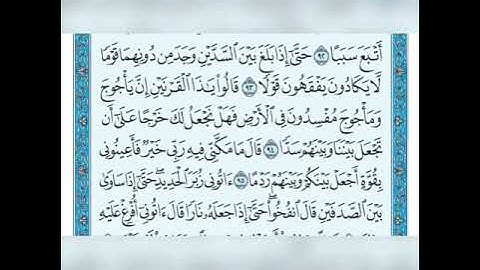 أَتْبَعَ سَبَبًا ٩٢ حَتَّىٰٓ إِذَا بَلَغَ بَيْنَ ٱلسَّدَّيْنِ وَجَدَ مِن دُونِهِمَا قَوْمًا
لَّا يَكَادُونَ يَفْقَهُونَ قَوْلًا ٩٣ قَالُوا۟ يَٰذَا ٱلْقَرْنَيْنِ إِنَّ يَأْجُوجَ
وَمَأْجُوجَ مُفْسِدُونَ فِى ٱلْأَرْضِ فَهَلْ نَجْعَلُ لَكَ خَرْجًا عَلَىٰٓ أَن
تَجْعَلَ بَيْنَنَا وَبَيْنَهُمْ سَدًّا ٩٤ قَالَ مَا مَكَّنِّى فِيهِ رَبِّى خَيْرٌ فَأَعِينُونِى
بِقُوَّةٍ أَجْعَلْ بَيْنَكُمْ وَبَيْنَهُمْ رَدْمًا ٩٥ ءَاتُونِى زُبَرَ ٱلْحَدِيدِ ۖ حَتَّىٰٓ إِذَا سَاوَىٰ
بَيْنَ ٱلصَّدَفَيْنِ قَالَ ٱنفُخُوا۟ ۖ حَتَّىٰٓ إِذَا جَعَلَهُۥ نَارًا قَالَ ءَاتُونِىٓ أُفْرِغْ عَلَيْهِ